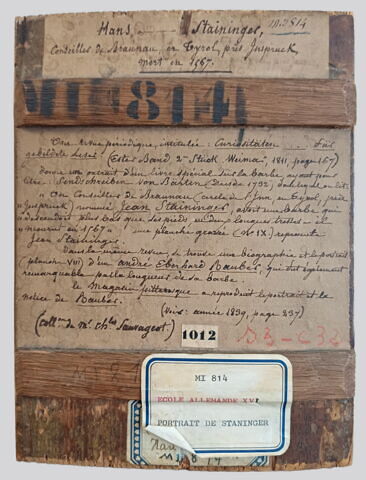 Hans Staininger,
10.2814
Conseiller de Braunau, en Tyrol, près Inspruck,
mort en 1567.
MI 814
Une revue périodique, intitulée: Curiositäten ... für
gebildete Leser (Ester Band, 2e Stück Weimar, 1811, page 167)
donne un extrait d'un livre spécial sur la barbe, ayant pour
titre: Sendschreiben von Bärten, Dresde 1732, dans lequel on lit:
"Un Conseiller de Braunau (cercle de l'Inn, en Tyrol, près
Inspruck) nommé Jean Staininger, avait une barbe qui
descendait plus bas que ses pieds en deux longues tresses – il
"mourut en 1567" une planche gravée (No IX.) représente
Jean Staininger.
Dans la même revue, se trouve une biographie et le portrait
(planche VIII) d'un André Eberhard Rauber, qui fut également
remarquable par la longueur de sa barbe.
le Magasin pittoresque a reproduit le portrait et la
notice de Rauber.
(Voir: année 1839, page 237)
(Collon de Mr Chles Sauvageot)
1012
MI 814
ECOLE ALLEMANDE XVI
PORTRAIT DE STANINGER
MI 814